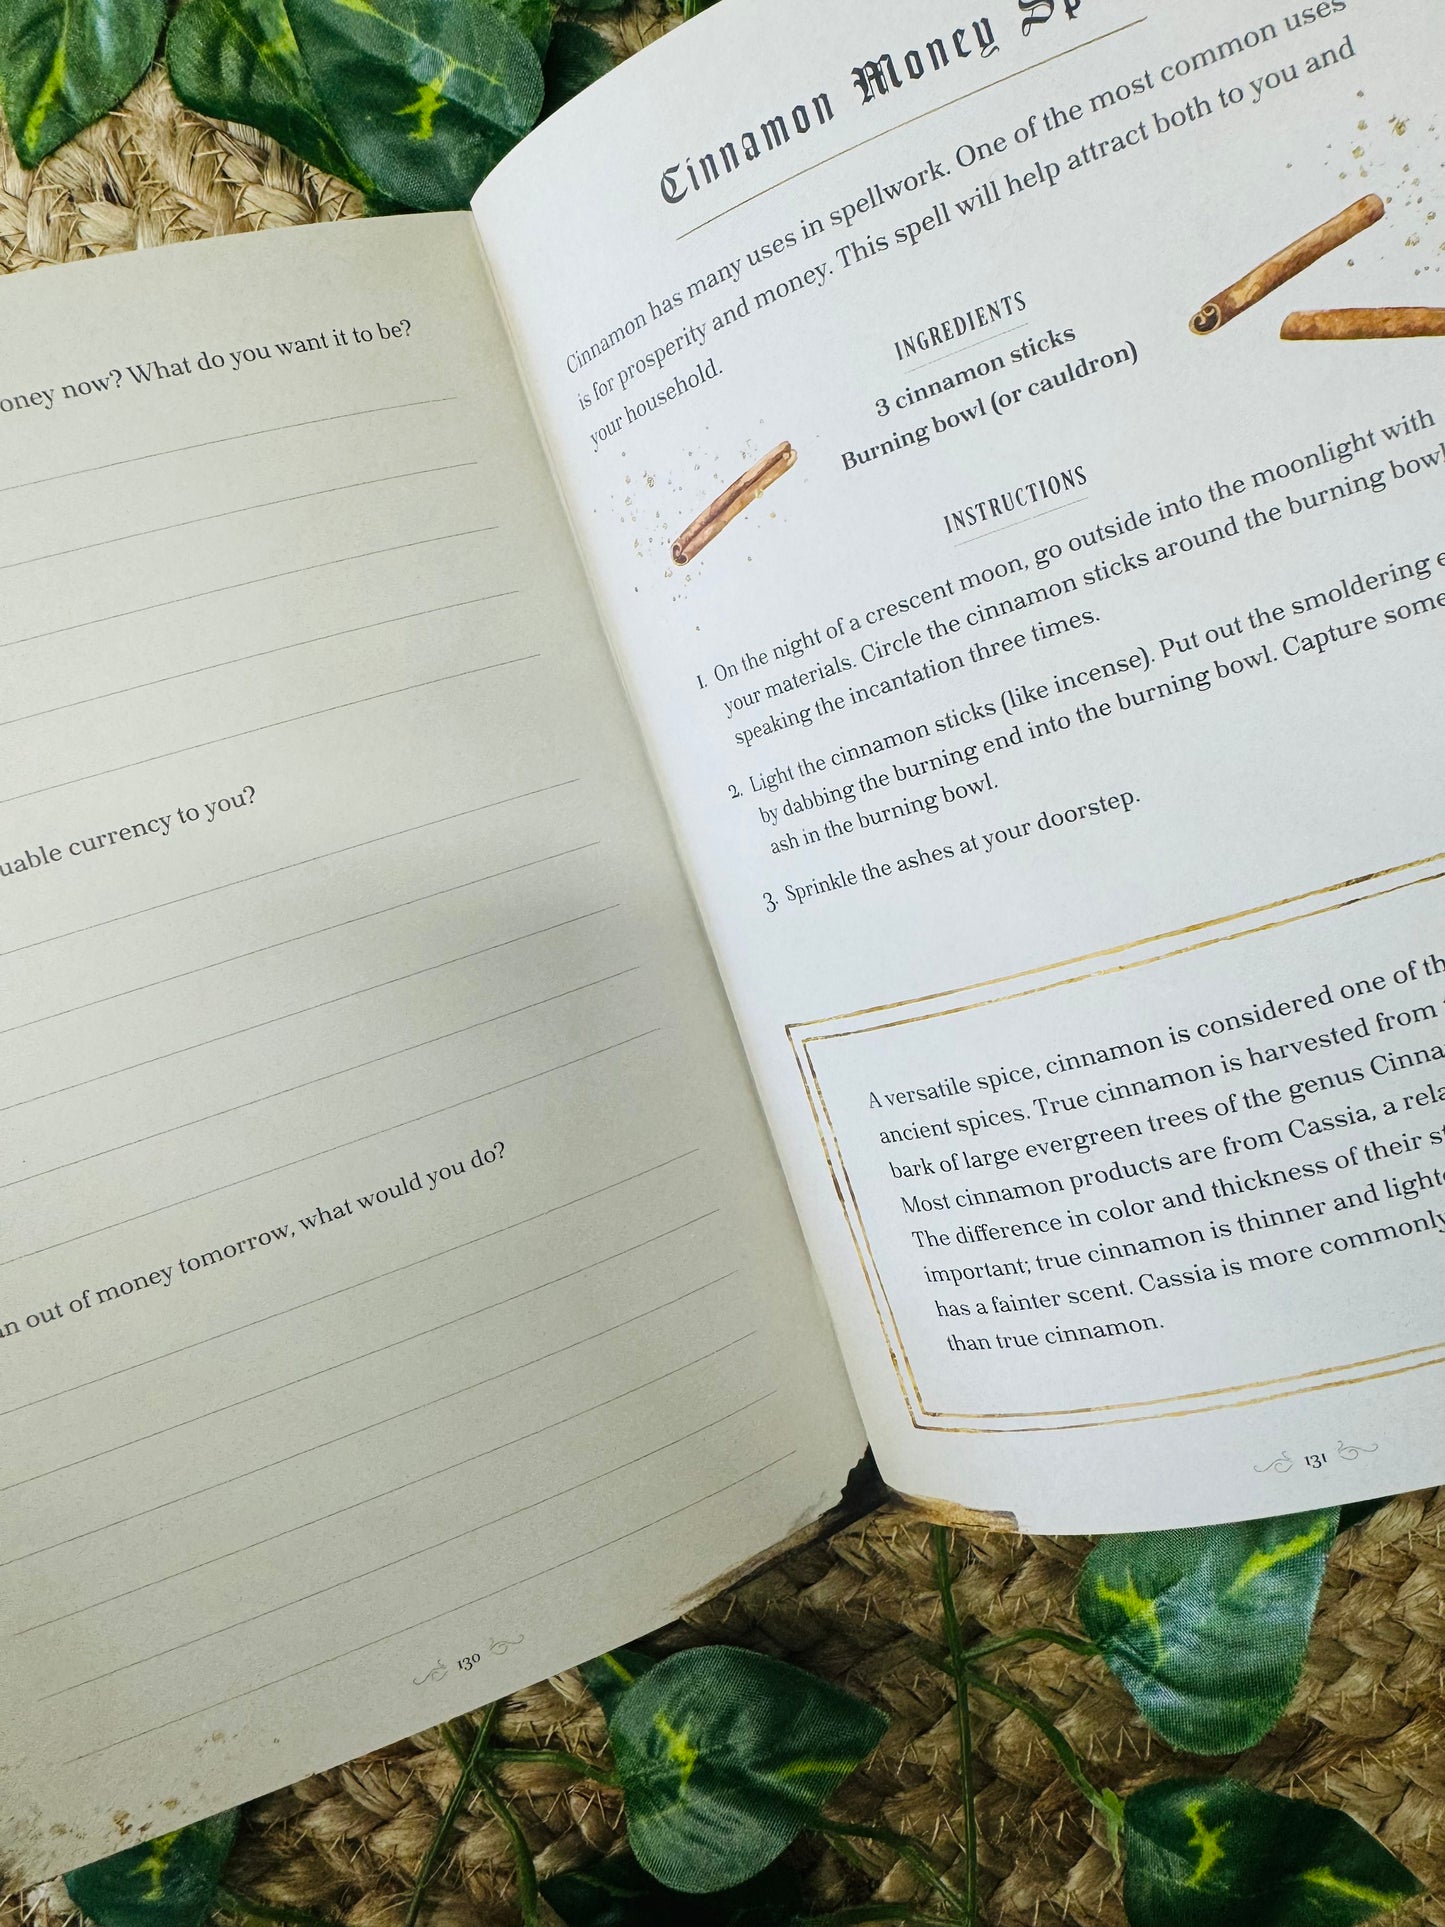 money now? What do you want it to be?
currency to you?
out of money tomorrow, what would you do?
130
Cinnamon Money
Cinnamon has many uses in spellwork. One of the most common uses
is for prosperity and money. This spell will help attract both to you and
your household.
INGREDIENTS
3 cinnamon sticks
Burning bowl (or cauldron)
INSTRUCTIONS
1. On the night of a crescent moon, go outside into the moonlight with
your materials. Circle the cinnamon sticks around the burning bowl
speaking the incantation three times.
2. Light the cinnamon sticks (like incense). Put out the smoldering
by dabbing the burning end into the burning bowl. Capture some
ash in the burning bowl.
3. Sprinkle the ashes at your doorstep.
A versatile spice, cinnamon is considered one of
ancient spices. True cinnamon is harvested from
bark of large evergreen trees of the genus
Most cinnamon products are from Cassia, a
The difference in color and thickness of their
important; true cinnamon is thinner and
has a fainter scent. Cassia is more commonly
than true cinnamon.
131